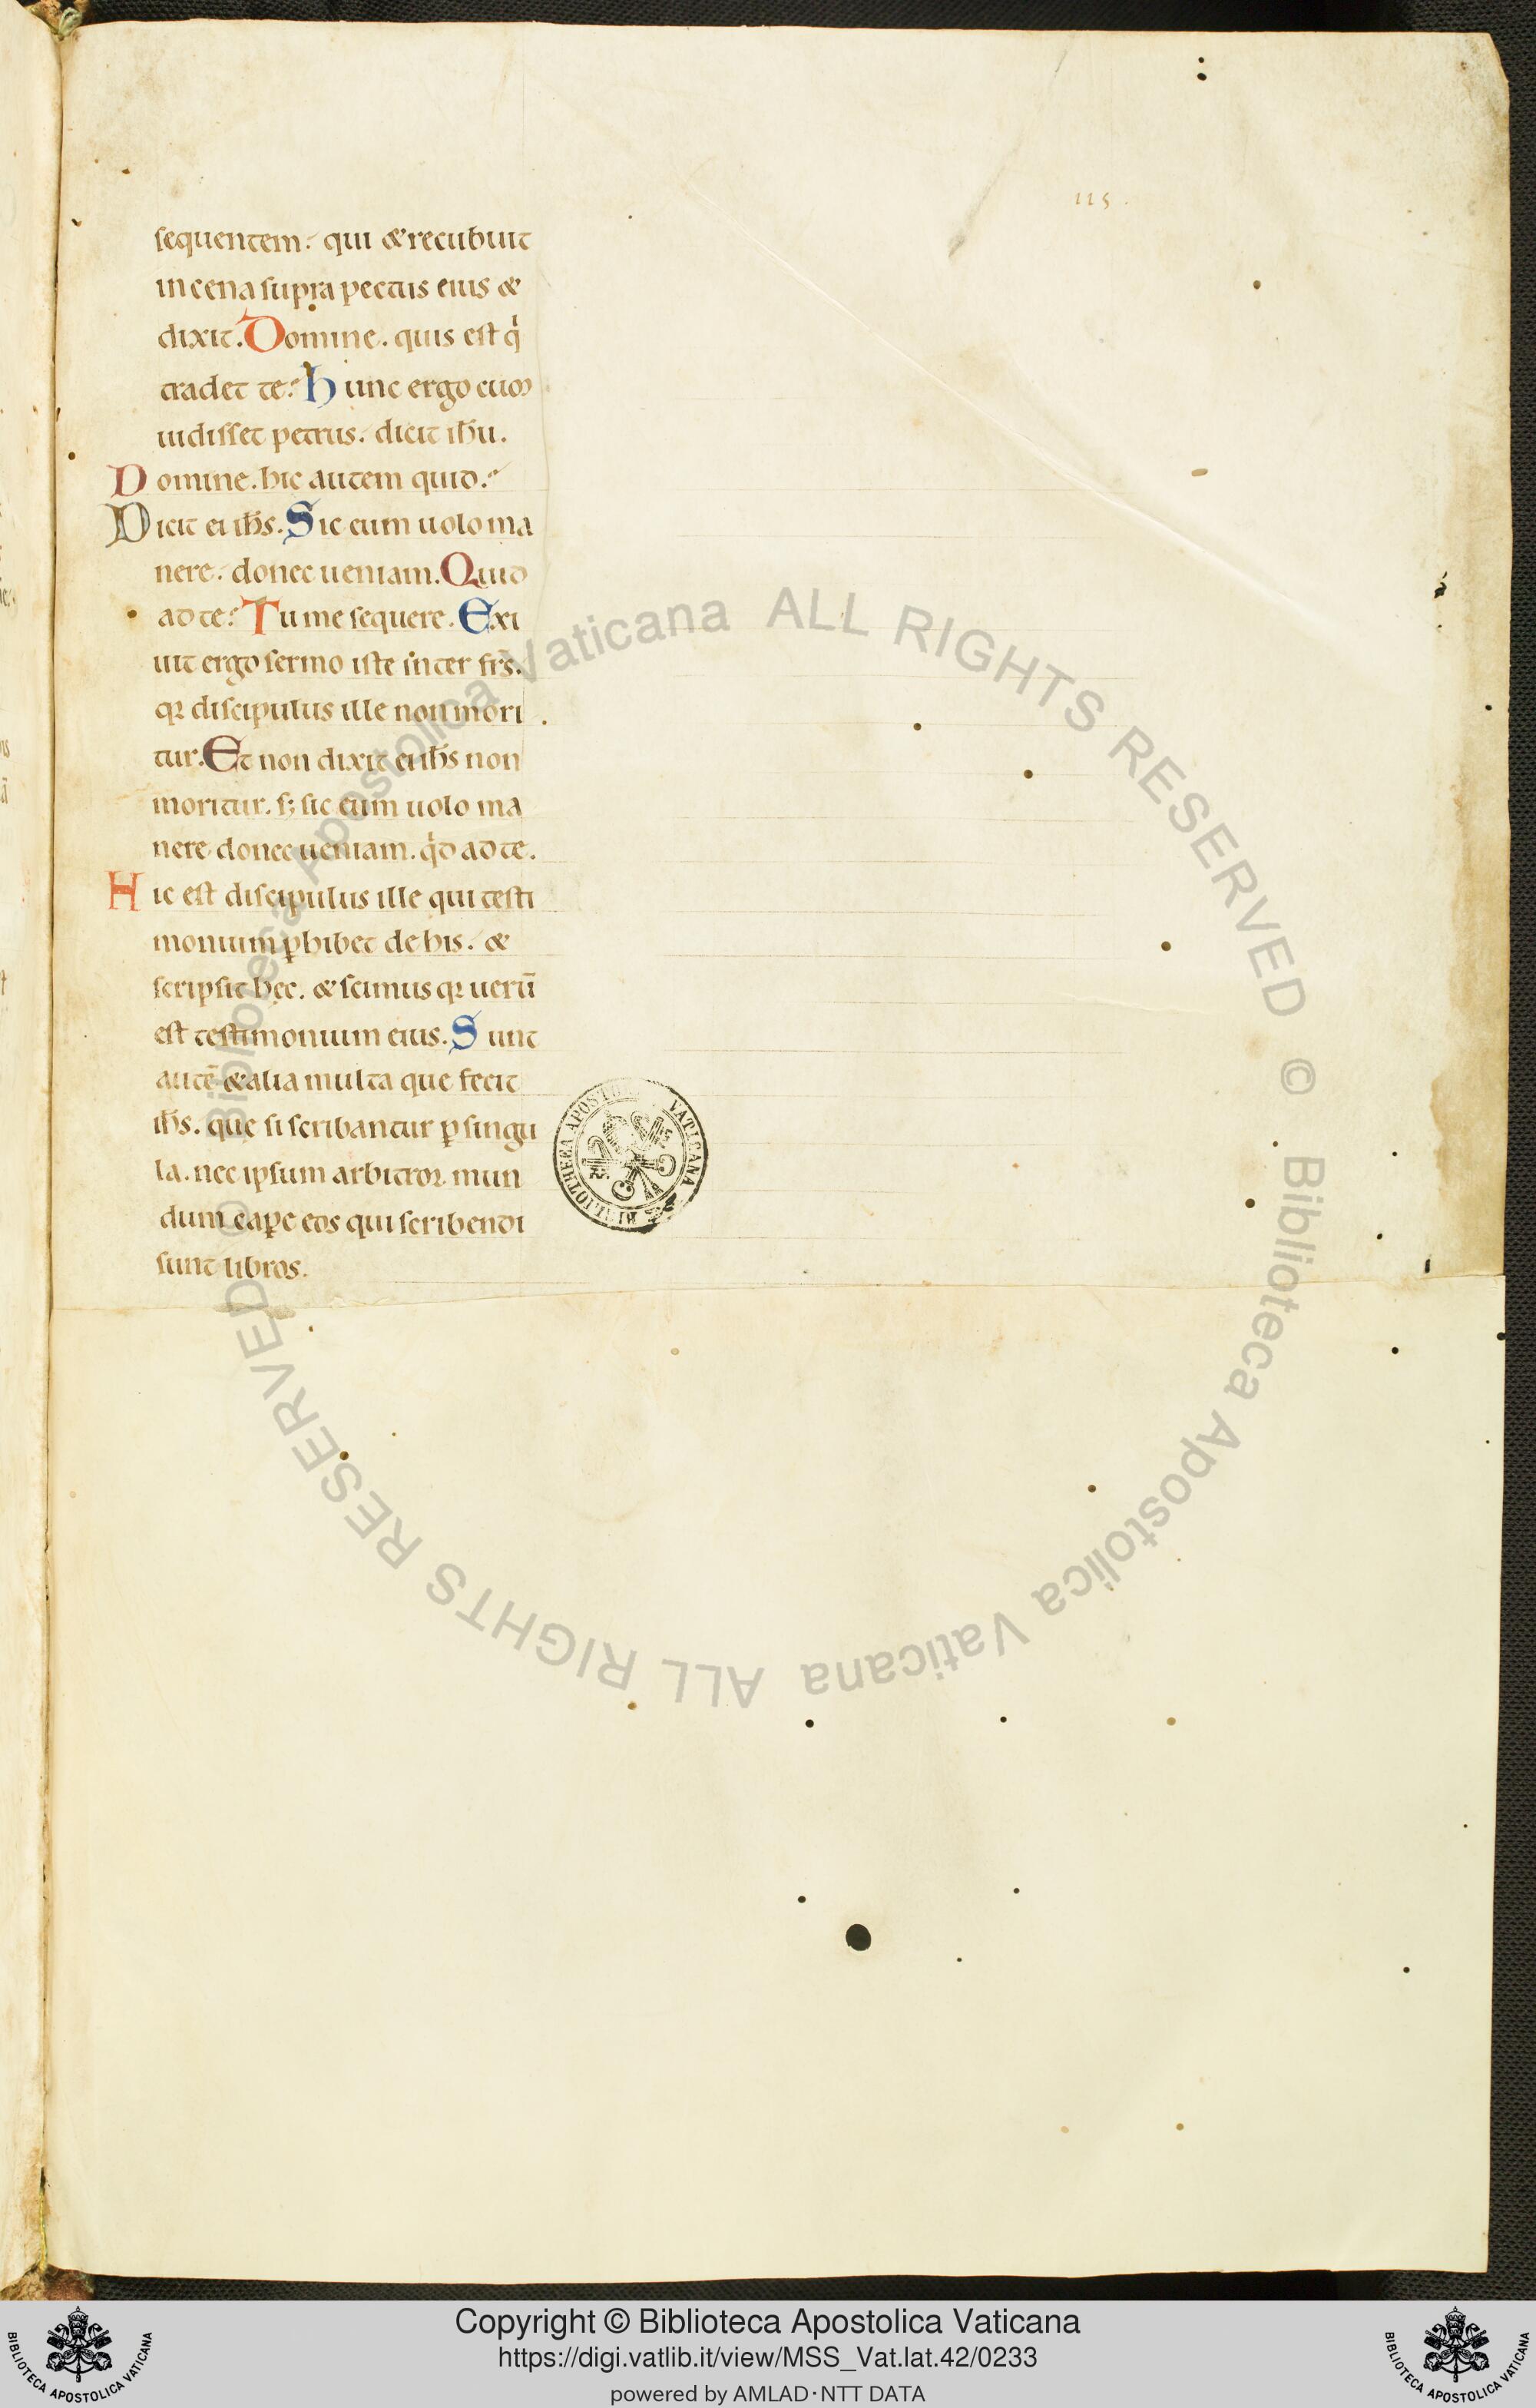 115.
sequentem. qui & recubuit
in cena supra pectus eius &
dixit. Domine. quis est q̍
tradet te? Hunc ergo cum
uidisset petrus. dicit ih̅u.
Domine. hic autem quid?
Dicit ei ih̅s. Sic eum uolo ma
nere. donec ueniam. Quid
ad te? Tu me sequere. Exi
uit ergo sermo iste inter fr̅s.
qꝛ discipulus ille non mori
tur. Et non dixit ei ih̅s non
moritur. s; sic eum uolo ma
nere donec ueniam. q̍d ad te.
Hic est discipulus ille qui testi
monium ꝑhibet de his. &
scripsit hęc. & scimus qꝛ ueru̅
est testimonium eius. Sunt
aute̅ & alia multa que fecit
ih̅s. que si scribantur ꝑ singu
la. nec ipsum arbitror mun
dum caꝑe eos qui scribendi
sunt libros.
BIBLIOTHECA APOSTOLICA VATICANA
© Biblioteca Apostolica Vaticana ALL RIGHTS RESERVED
© Biblioteca Apostolica Vaticana ALL RIGHTS RESERVED
Copyright © Biblioteca Apostolica Vaticana
https://digi.vatlib.it/view/MSS_Vat.lat.42/0233
powered by AMLAD·NTT DATA
BIBLIOTECA APOSTOLICA VATICANA
BIBLIOTECA APOSTOLICA VATICANA